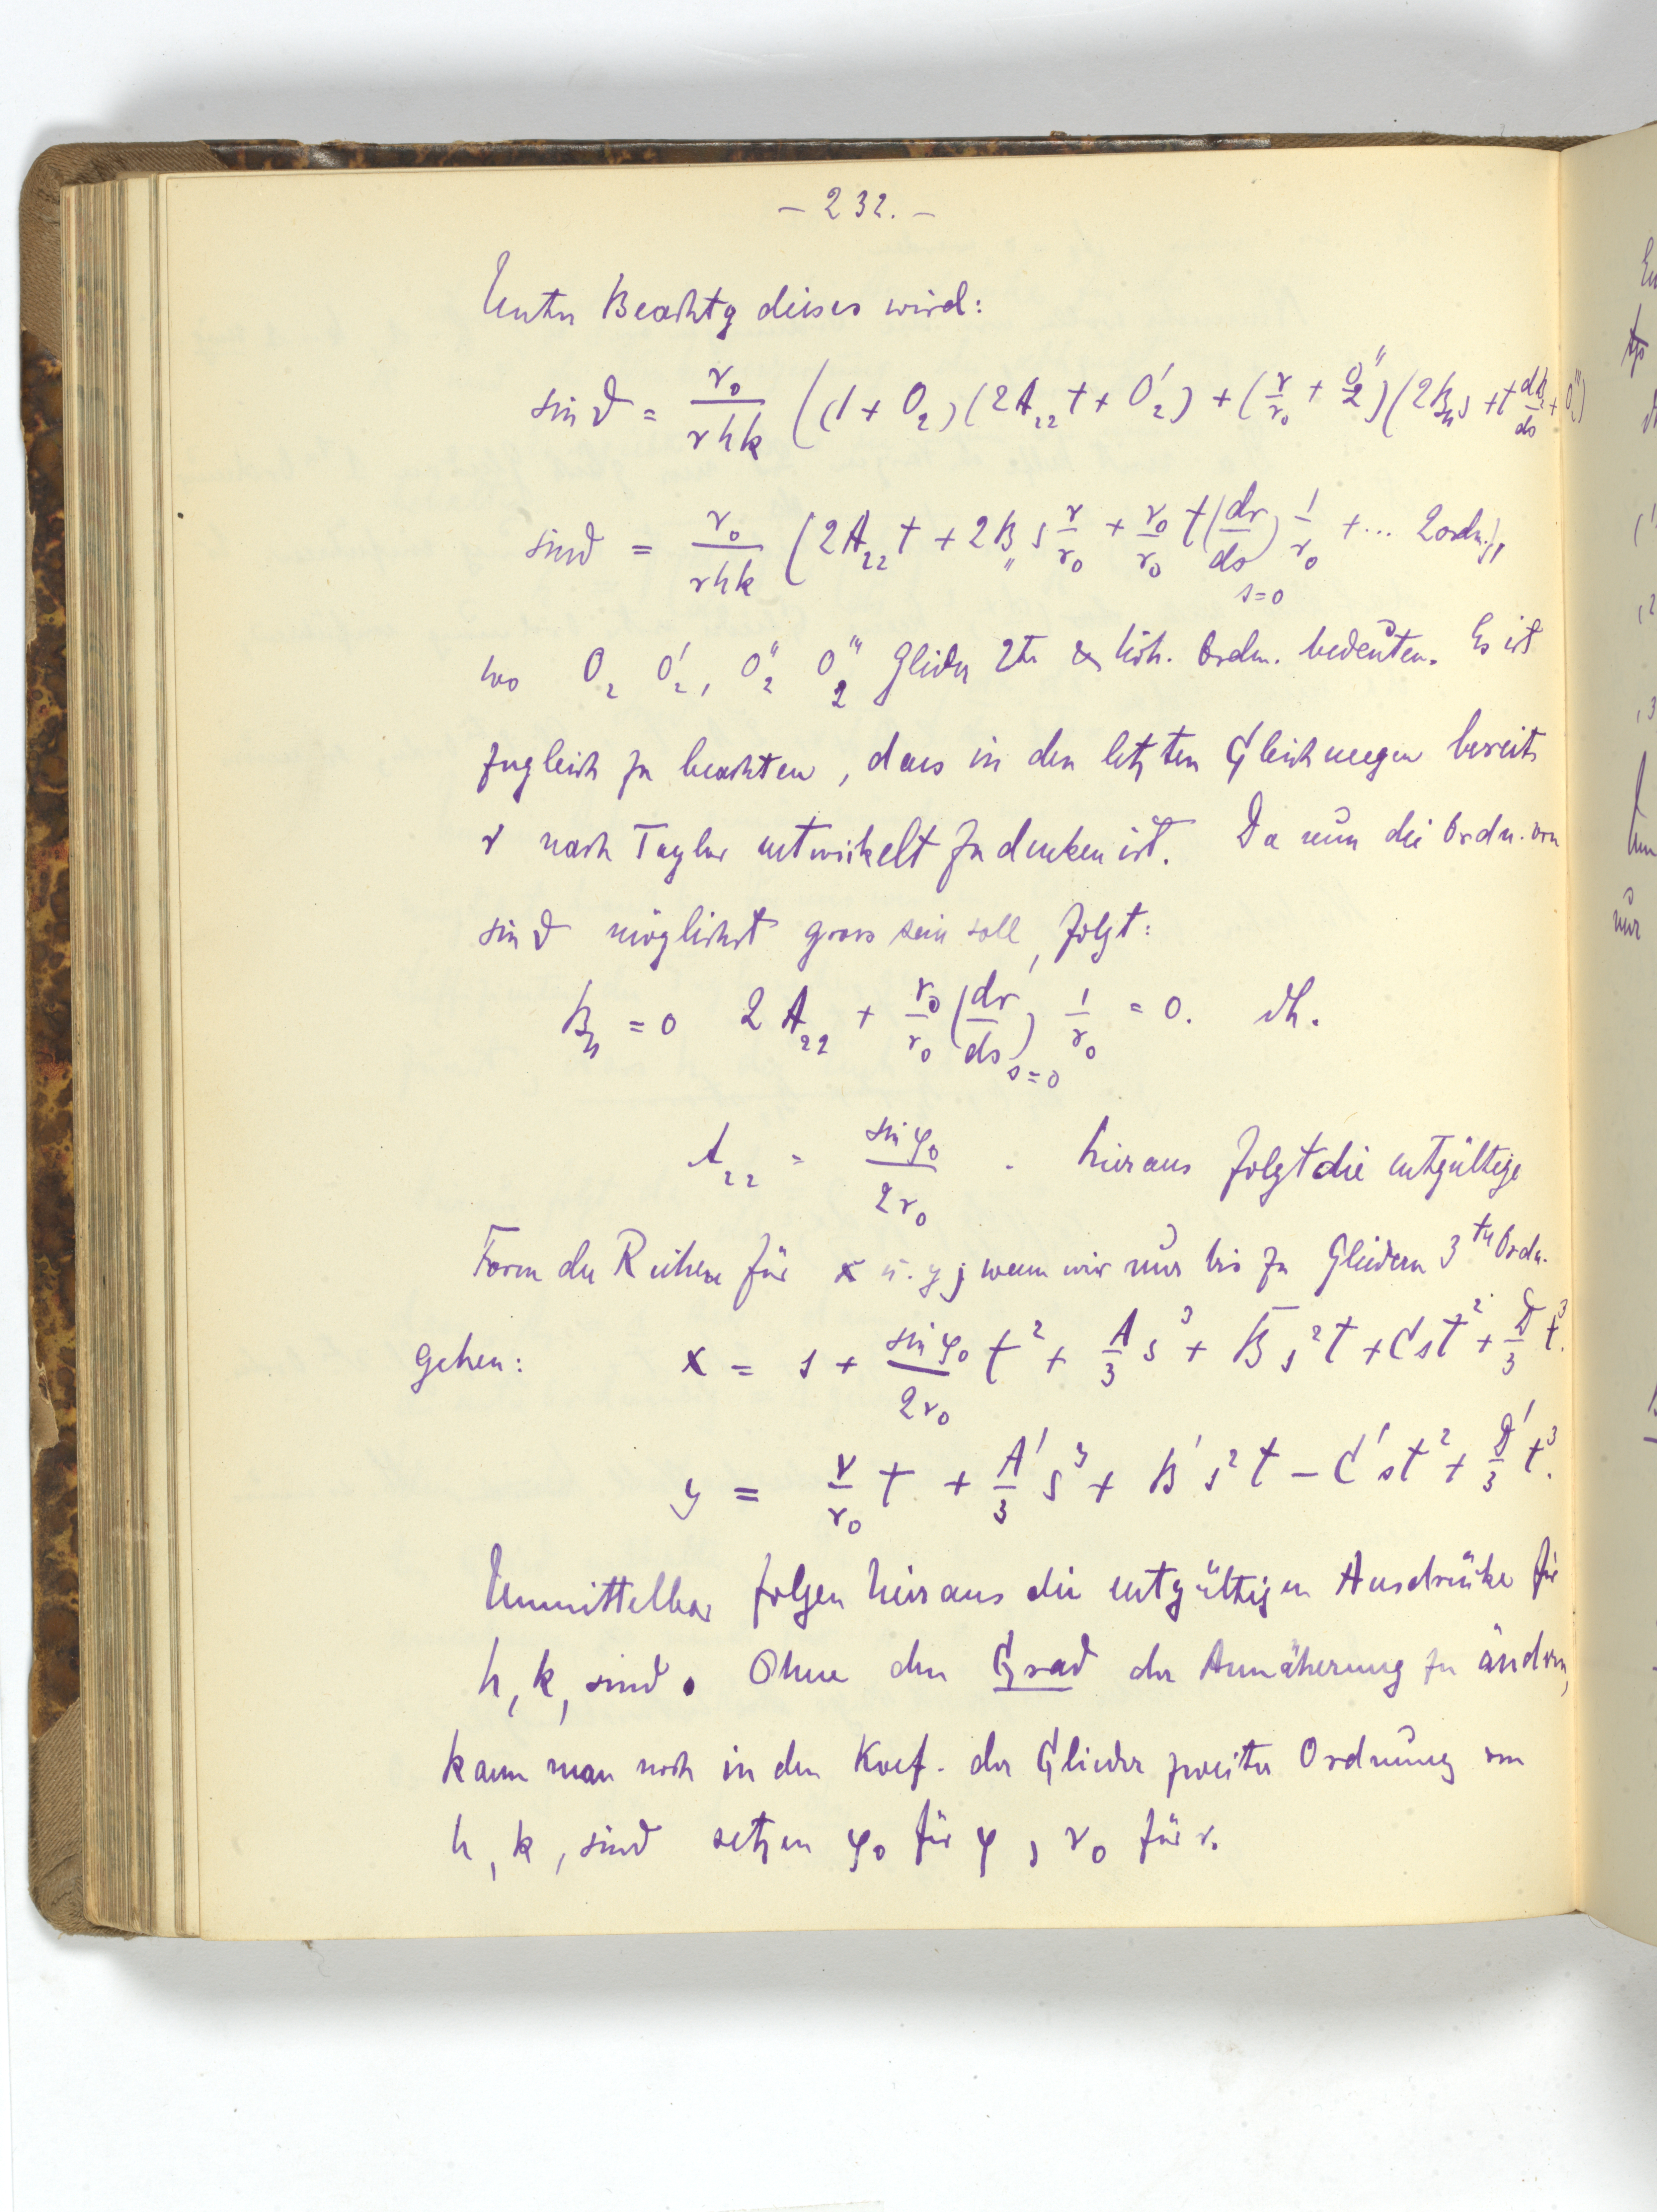 – 232. –
Unter Beachtg dieses wird:
sin ϑ = r₀/rhk ((1 + O₂)(2A₂₂t + O₂') + (r/r₀ + O₂'')(2B₁₁s + t dr/ds + O₂''')
sin ϑ = r₀/rhk (2A₂₂t + 2B₁₁s r/r₀ + r₀/r₀ t(dr/ds)ₛ₌₀ 1/r₀ + ... 2 ordn.),
wo O₂ O₂', O₂'' O₂''' Glieder 2tr & höh. Ordn. bedeuten. Es ist
zugleich zu beachten, dass in den letzten Gleichungen bereits
r nach Taylor entwickelt zu denken ist. Da nun die Ordn. von
sin ϑ möglichst gross sein soll, folgt:
B₁₁ = 0 2A₂₂ + r₀/r₀ (dr/ds)ₛ₌₀ 1/r₀ = 0. dh.
A₂₂ = sin φ₀/2r₀ . hieraus folgt die entgültige
Form der Reihen für x u. y; wenn wir nur bis zu Gliedern 3ter Ordn.
gehen: x = s + sin φ₀/2r₀ t² + A/3 s³ + B s²t + C st² + D/3 t³.
y = r/r₀ t + A'/3 s³ + B's²t – C'st² + D'/3 t³.
Unmittelbar folgen hieraus die entgültigen Ausdrücke für
h, k, sin ϑ. Ohne den Grad der Annäherung zu ändern,
kann man noch in den Koef. der Glieder zweiter Ordnung von
h, k, sin ϑ setzen φ₀ für φ, r₀ für r.